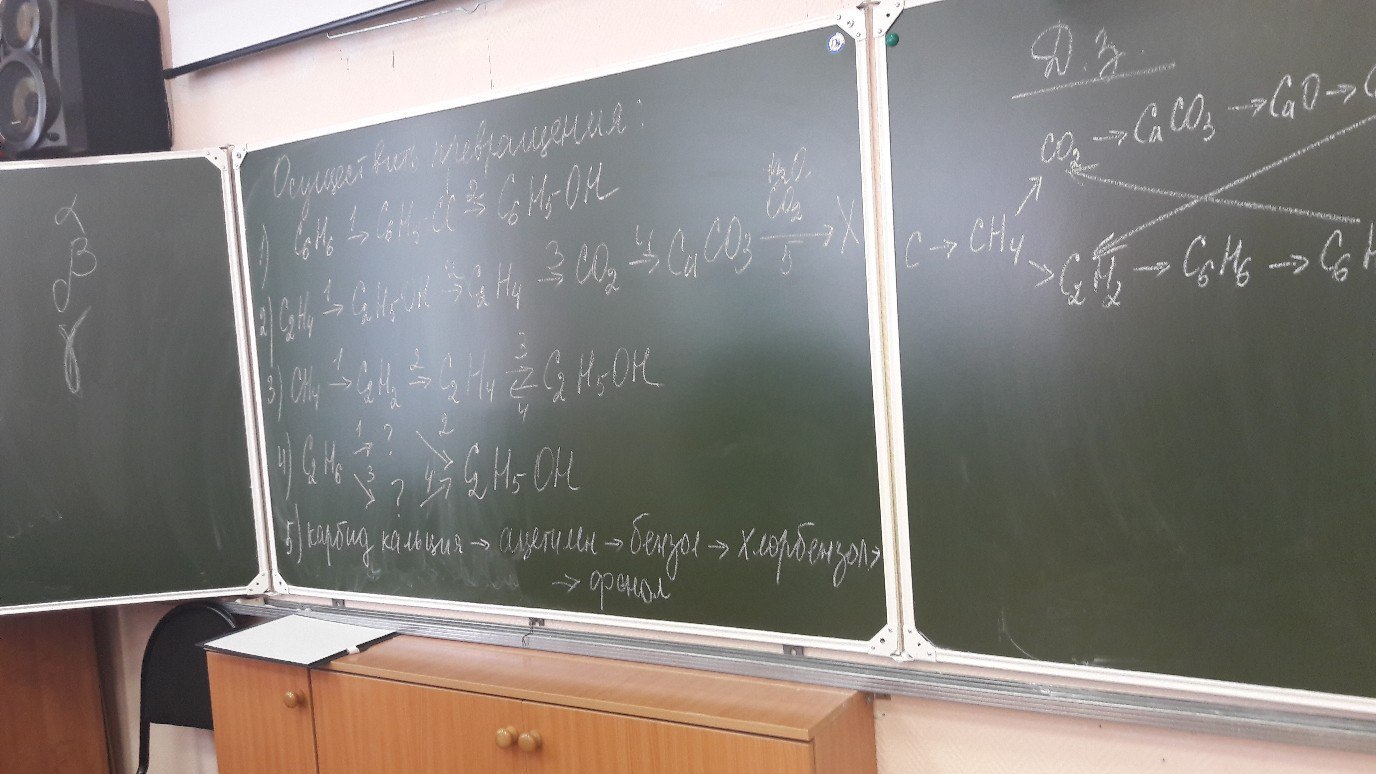 α
β
γ
Осуществить превращения:
1) C₆H₆ →¹ C₆H₅Cl →² C₆H₅OH
2) C₂H₄ →¹ C₂H₅OH →² C₂H₄ →³ CO₂ →⁴ CaCO₃ → X
H₂O, CO₂
5
3) CH₄ →¹ C₂H₂ →² C₂H₄ ⇄ C₂H₅OH
3
4
4) C₂H₆ →¹ ? ↘² C₂H₅OH
↘³ ? ↗⁴
5) карбид кальция → ацетилен → бензол → хлорбензол →
→ фенол
Д.З.
CO₂ → CaCO₃ → CaO → C
C → CH₄ ↗
↘ C₂H₂ → C₆H₆ → C₆H